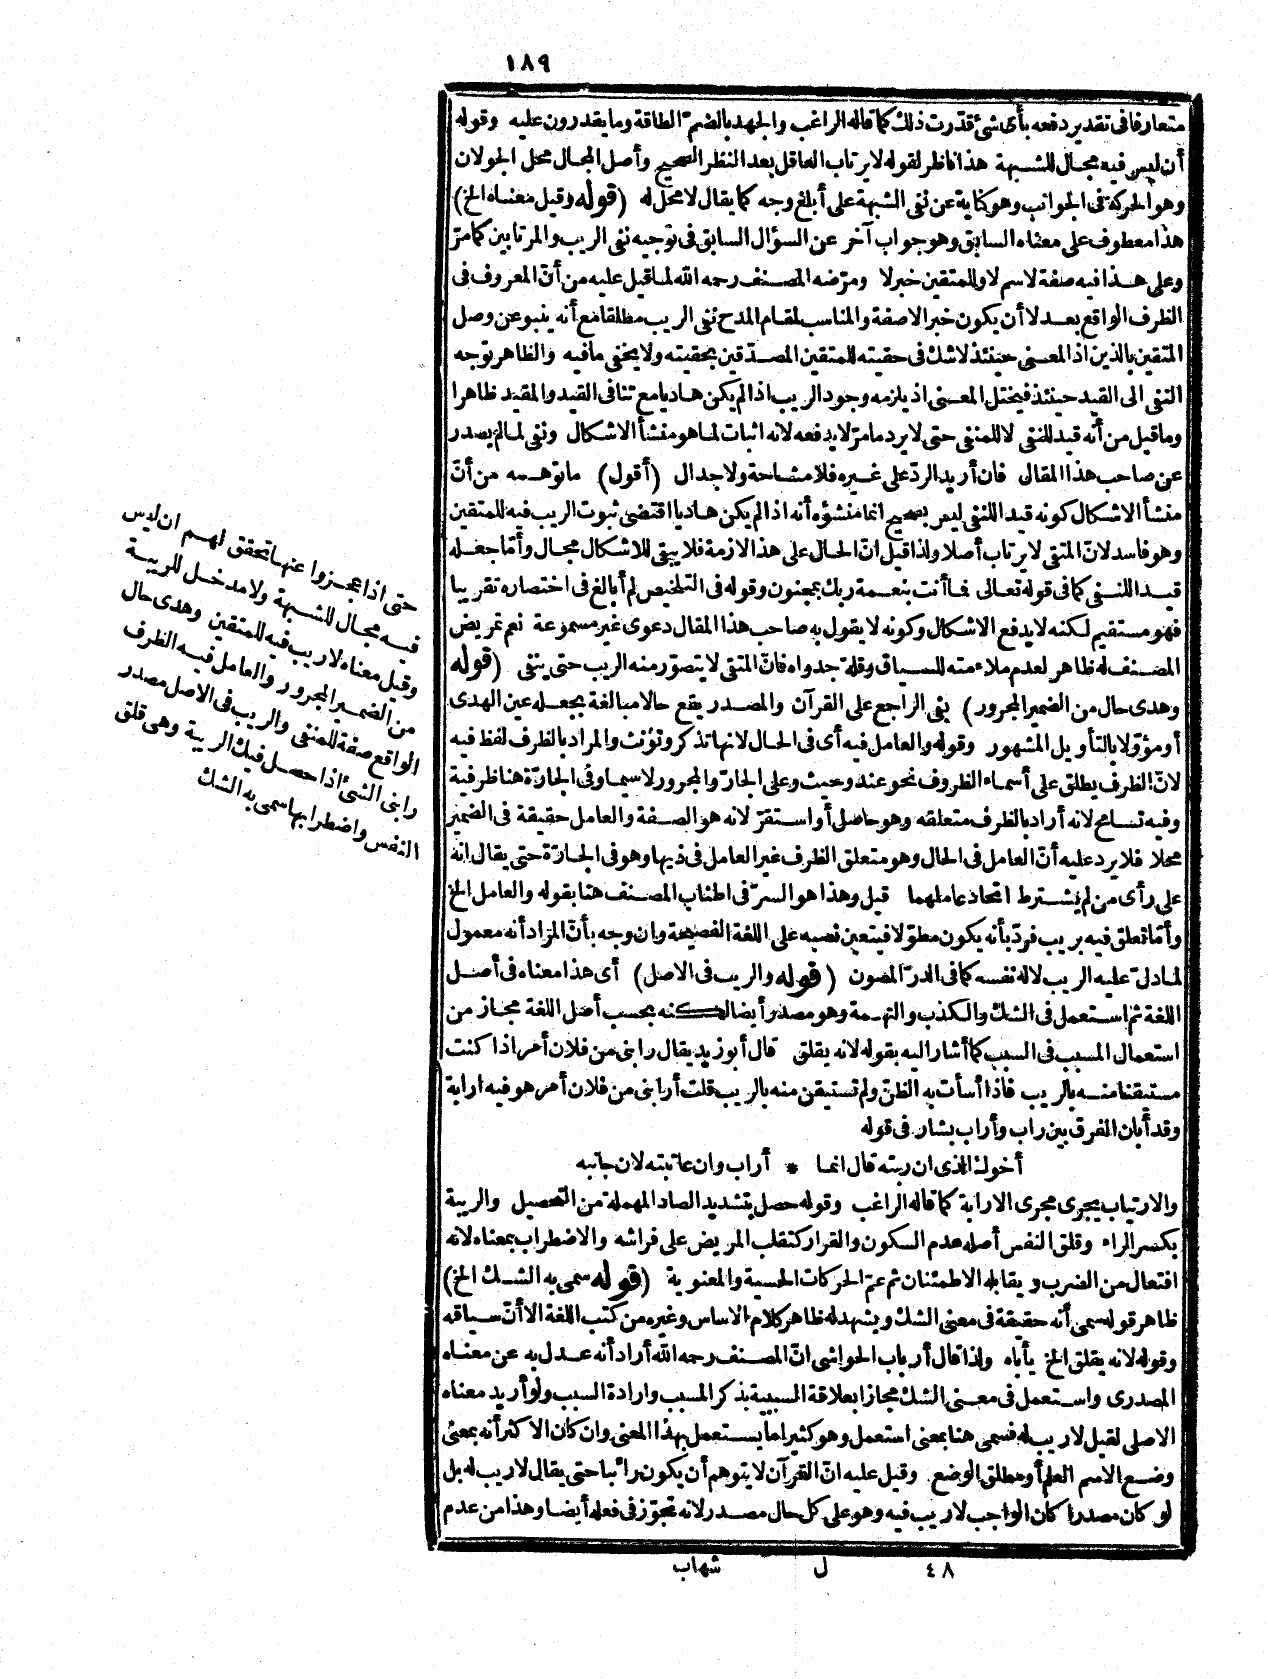 ١٨٩
متعارفا فى تقدير دفعه بأى شئ قدّرت ذلك كما قاله الراغب والجهد بالضمّ الطاقة وما يقدرون عليه وقوله
أن ليس فيه مجال للشبهة هذا ناظر لقوله لا يرتاب العاقل بعد النظر الصحيح وأصل المجال محل الجولان
وهو الحركة فى الجوانب وهو كناية عن نفى الشبهة على أبلغ وجه كما يقال لا محل له (قوله وقيل معناه الخ)
هذا معطوف على معناه السابق وهو جواب آخر عن السؤال السابق فى توجيه نفى الريب والمرتابين كما مرّ
وعلى هذا فيه صفة لاسم لا وللمتقين خبر لا ومرّضه المصنف رحمه الله لما قيل عليه من أنّ المعروف فى
الظرف الواقع بعد لا أن يكون خبرا لا صفة والمناسب لمقام المدح نفى الريب مطلقا مع أنه ينبو عن وصل
المتقين بالذين اذ المعنى حينئذ لا شك فى حقيته للمتقين المصدّقين بحقيته ولا يخفى ما فيه والظاهر توجه
النفى الى القيد حينئذ فيختل المعنى اذ يلزمه وجود الريب اذا لم يكن هاديا مع تنافى القيد والمقيد ظاهرا
وما قيل من أنه قيد للنفى لا للمنفى حتى لا يرد ما مرّ لا يدفعه لانه اثبات لما هو منشأ الاشكال ونفى لما لم يصدر
عن صاحب هذا المقال فان أريد الردّ على غيره فلا مشاحة ولا جدال (أقول) ما توهمه من أنّ
منشأ الاشكال كونه قيد اللنفى ليس بصحيح انما منشؤه أنه اذا لم يكن هاديا اقتضى ثبوت الريب فيه للمتقين
وهو فاسد لانّ المتقى لا يرتاب أصلا ولذا قيل انّ الحال على هذا لازمة فلا يبقى للاشكال مجال وأمّا جعله
قيد اللنفى كما فى قوله تعالى فما أنت بنعمة ربك بمجنون وقوله فى التلخيص لم أبالغ فى اختصاره تقريبا
فهو مستقيم لكنه لا يدفع الاشكال وكونه لا يقول به صاحب هذا المقال دعوى غير مسموعة نعم تمريض
المصنف له ظاهر لعدم ملاءمته للسياق وقلة جدواه فانّ المتقى لا يتصوّر منه الريب حتى ينفى (قوله
وهدى حال من الضمير المجرور) يعنى الراجع على القرآن والمصدر يقع حالا مبالغة بجعله عين الهدى
أو مؤوّلا بالتأويل المشهور وقوله والعامل فيه أى فى الحال لانها تذكر وتؤنث والمراد بالظرف لفظ فيه
لانّ الظرف يطلق على أسماء الظروف نحو عند وحيث وعلى الجارّ والمجرور لا سيما وفى الجارّة هنا ظرفية
وفيه تسامح لانه أراد بالظرف متعلقه وهو حاصل أو استقرّ لانه هو الصفة والعامل حقيقة فى الضمير
محلا فلا يرد عليه أنّ العامل فى الحال وهو متعلق الظرف غير العامل فى ذيها وهو فى الجارّة حتى يقال انه
على رأى من لم يشترط اتحاد عاملهما قيل وهذا هو السرّ فى اطناب المصنف هنا بقوله والعامل الخ
وأمّا تعلق فيه بريب فردّ بأنه يكون مطوّلا فيتعين نصبه على اللغة الفصيحة وان وجه بأنّ المراد أنه معمول
لما دلّ عليه الريب لا له نفسه كما فى الدرّ المصون (قوله والريب فى الاصل) أى هذا معناه فى أصل
اللغة ثم استعمل فى الشك والكذب والتهمة وهو مصدر أيضا لكنه بحسب أصل اللغة مجاز من
استعمال المسبب فى السبب كما أشار اليه بقوله لانه يقلق قال أبو زيد يقال رابنى من فلان أمر اذا كنت
مستيقنا منه بالريب فاذا أسأت به الظنّ ولم تستيقن منه بالريب قلت أرابنى من فلان أمر هو فيه ارابة
وقد أبان الفرق بين راب وأراب بشار فى قوله
أخوك الذى ان ربته قال انما * أراب وان عاتبته لان جانبه
والارتياب يجرى مجرى الارابة كما قاله الراغب وقوله حصل بتشديد الصاد المهملة من التحصيل والريبة
بكسر الراء وقلق النفس أصله عدم السكون والقرار كتقلب المريض على فراشه والاضطراب بمعناه لانه
افتعال من الضرب ويقابله الاطمئنان ثم عمّ الحركات الحسية والمعنوية (قوله سمى به الشك الخ)
ظاهر قوله سمى أنه حقيقة فى معنى الشك ويشهد له ظاهر كلام الاساس وغيره من كتب اللغة الا أنّ سياقه
وقوله لانه يقلق الخ يأباه ولذا قال أرباب الحواشى انّ المصنف رحمه الله أراد أنه عدل به عن معناه
المصدرى واستعمل فى معنى الشك مجازا بعلاقة السببية بذكر المسبب وارادة السبب ولو أريد معناه
الاصلى لقيل لا ريب له فسمى هنا بمعنى استعمل وهو كثيرا ما يستعمل بهذا المعنى وان كان الاكثر أنه بمعنى
وضع الاسم العلم أو مطلق الوضع وقيل عليه انّ القرآن لا يتوهم أن يكون رائبا حتى يقال لا ريب له بل
لو كان مصدرا كان الواجب لا ريب فيه وهو على كل حال مصدر لانه تجوّز فى فعله أيضا وهذا من عدم
حتى اذا عجزوا عنها تحقق لهم ان ليس
فيه مجال للشبهة ولا مدخل للريبة
وقيل معناه لا ريب فيه للمتقين وهدى حال
من الضمير المجرور والعامل فيه الظرف
الواقع صفة للمنفى والريب فى الاصل مصدر
رابنى الشئ اذا حصل فيك الريبة وهى قلق
النفس واضطرابها سمى به الشك
٤٨ ل شهاب